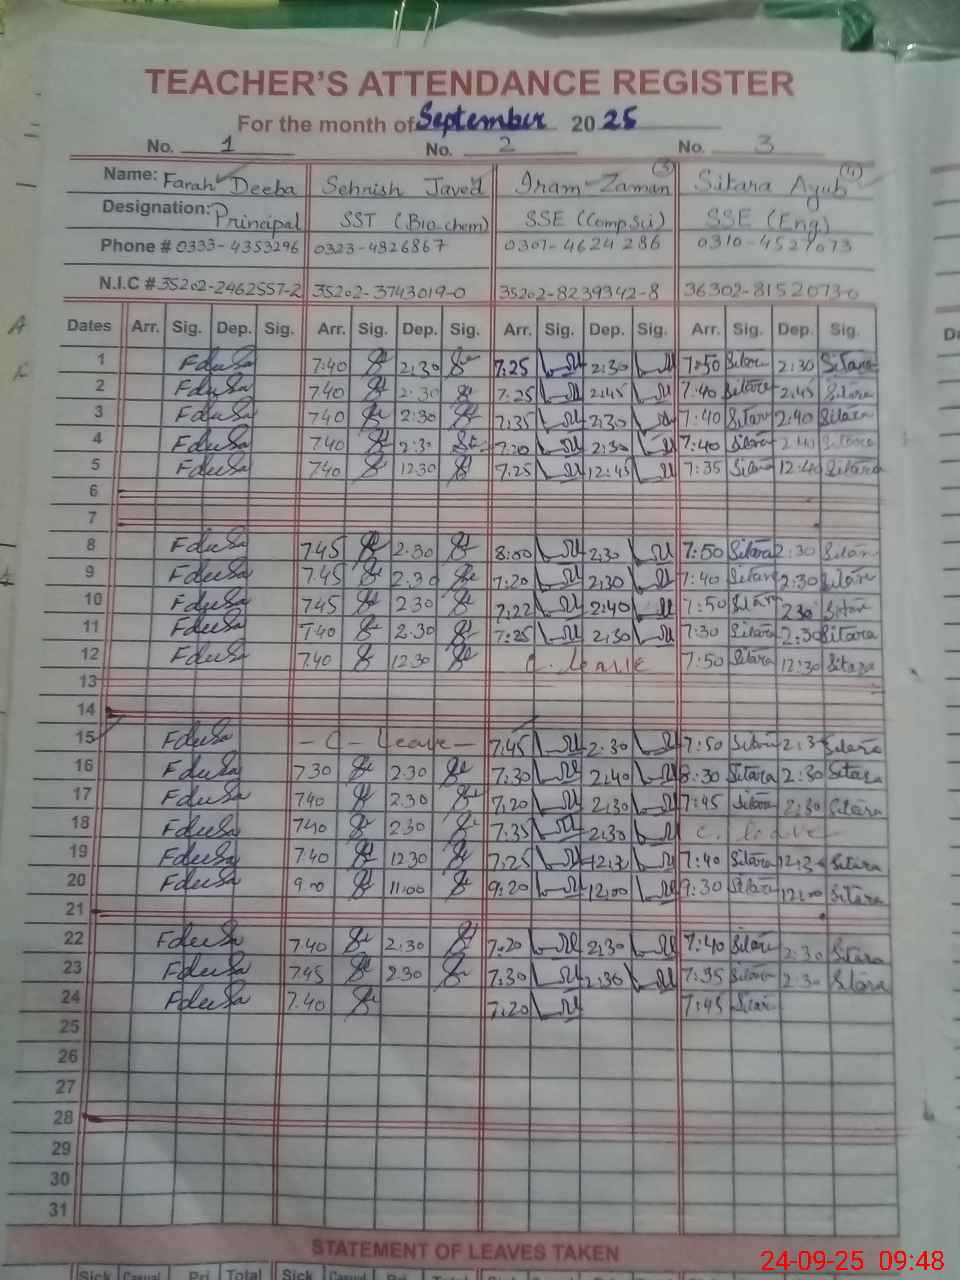 TEACHER'S ATTENDANCE REGISTER
For the month of September 20 25
No. 1 No. 2 No. 3
Name: Farah Deeba Sehnish Javed Iram Zaman (3) Sitara Ayub (4)
Designation: Principal SST (Bio-chem) SSE (Comp.Sci) SSE (Eng)
Phone # 0333-4353296 0323-4826867 0307-4624286 0310-4527073
N.I.C # 35202-2462557-2 35202-3743019-0 35202-8239342-8 36302-8152073-0
Dates Arr. Sig. Dep. Sig. Arr. Sig. Dep. Sig. Arr. Sig. Dep. Sig. Arr. Sig. Dep. Sig.
1 7:40 2:30 7:25 2:30 7:50 Sitara 2:30 Sitara
2 7:40 2:30 7:25 2:45 7:40 Sitara 2:45 Sitara
3 7:40 2:30 7:35 2:30 7:40 Sitara 2:40 Sitara
4 7:40 2:3 7:20 2:30 7:40 Sitara 2:40 Sitara
5 7:40 12:30 7:25 12:45 7:35 Sitara 12:40 Sitara
6
7
8 7:45 2:30 8:00 2:30 7:50 Sitara 2:30 Sitara
9 7:45 2:30 7:20 2:30 7:40 Sitara 2:30 Sitara
10 7:45 2:30 7:22 2:40 7:50 Sitara 2:30 Sitara
11 7:40 2:30 7:25 2:30 7:30 Sitara 2:30 Sitara
12 7:40 12:30 C. leave 7:50 Sitara 12:30 Sitara
13
14
15 - C - Leave - 7:45 2:30 7:50 Sitara 2:3 Sitara
16 7:30 2:30 7:30 2:40 8:30 Sitara 2:30 Sitara
17 7:40 2:30 7:20 2:30 7:45 Sitara 2:30 Sitara
18 7:40 2:30 7:35 2:30 C. leave
19 7:40 12:30 7:25 12:3 7:40 Sitara 12:3 Sitara
20 9:00 11:00 9:20 12:00 9:30 Sitara 12:00 Sitara
21
22 7:40 2:30 7:20 2:30 7:40 Sitara 2:30 Sitara
23 7:45 2:30 7:30 2:36 7:35 Sitara 2:30 Sitara
24 7:40 7:20 7:45 Sitar
25
26
27
28
29
30
31
STATEMENT OF LEAVES TAKEN
Sick Casual Pri Total Sick Casual Pri Total Sick
24-09-25 09:48